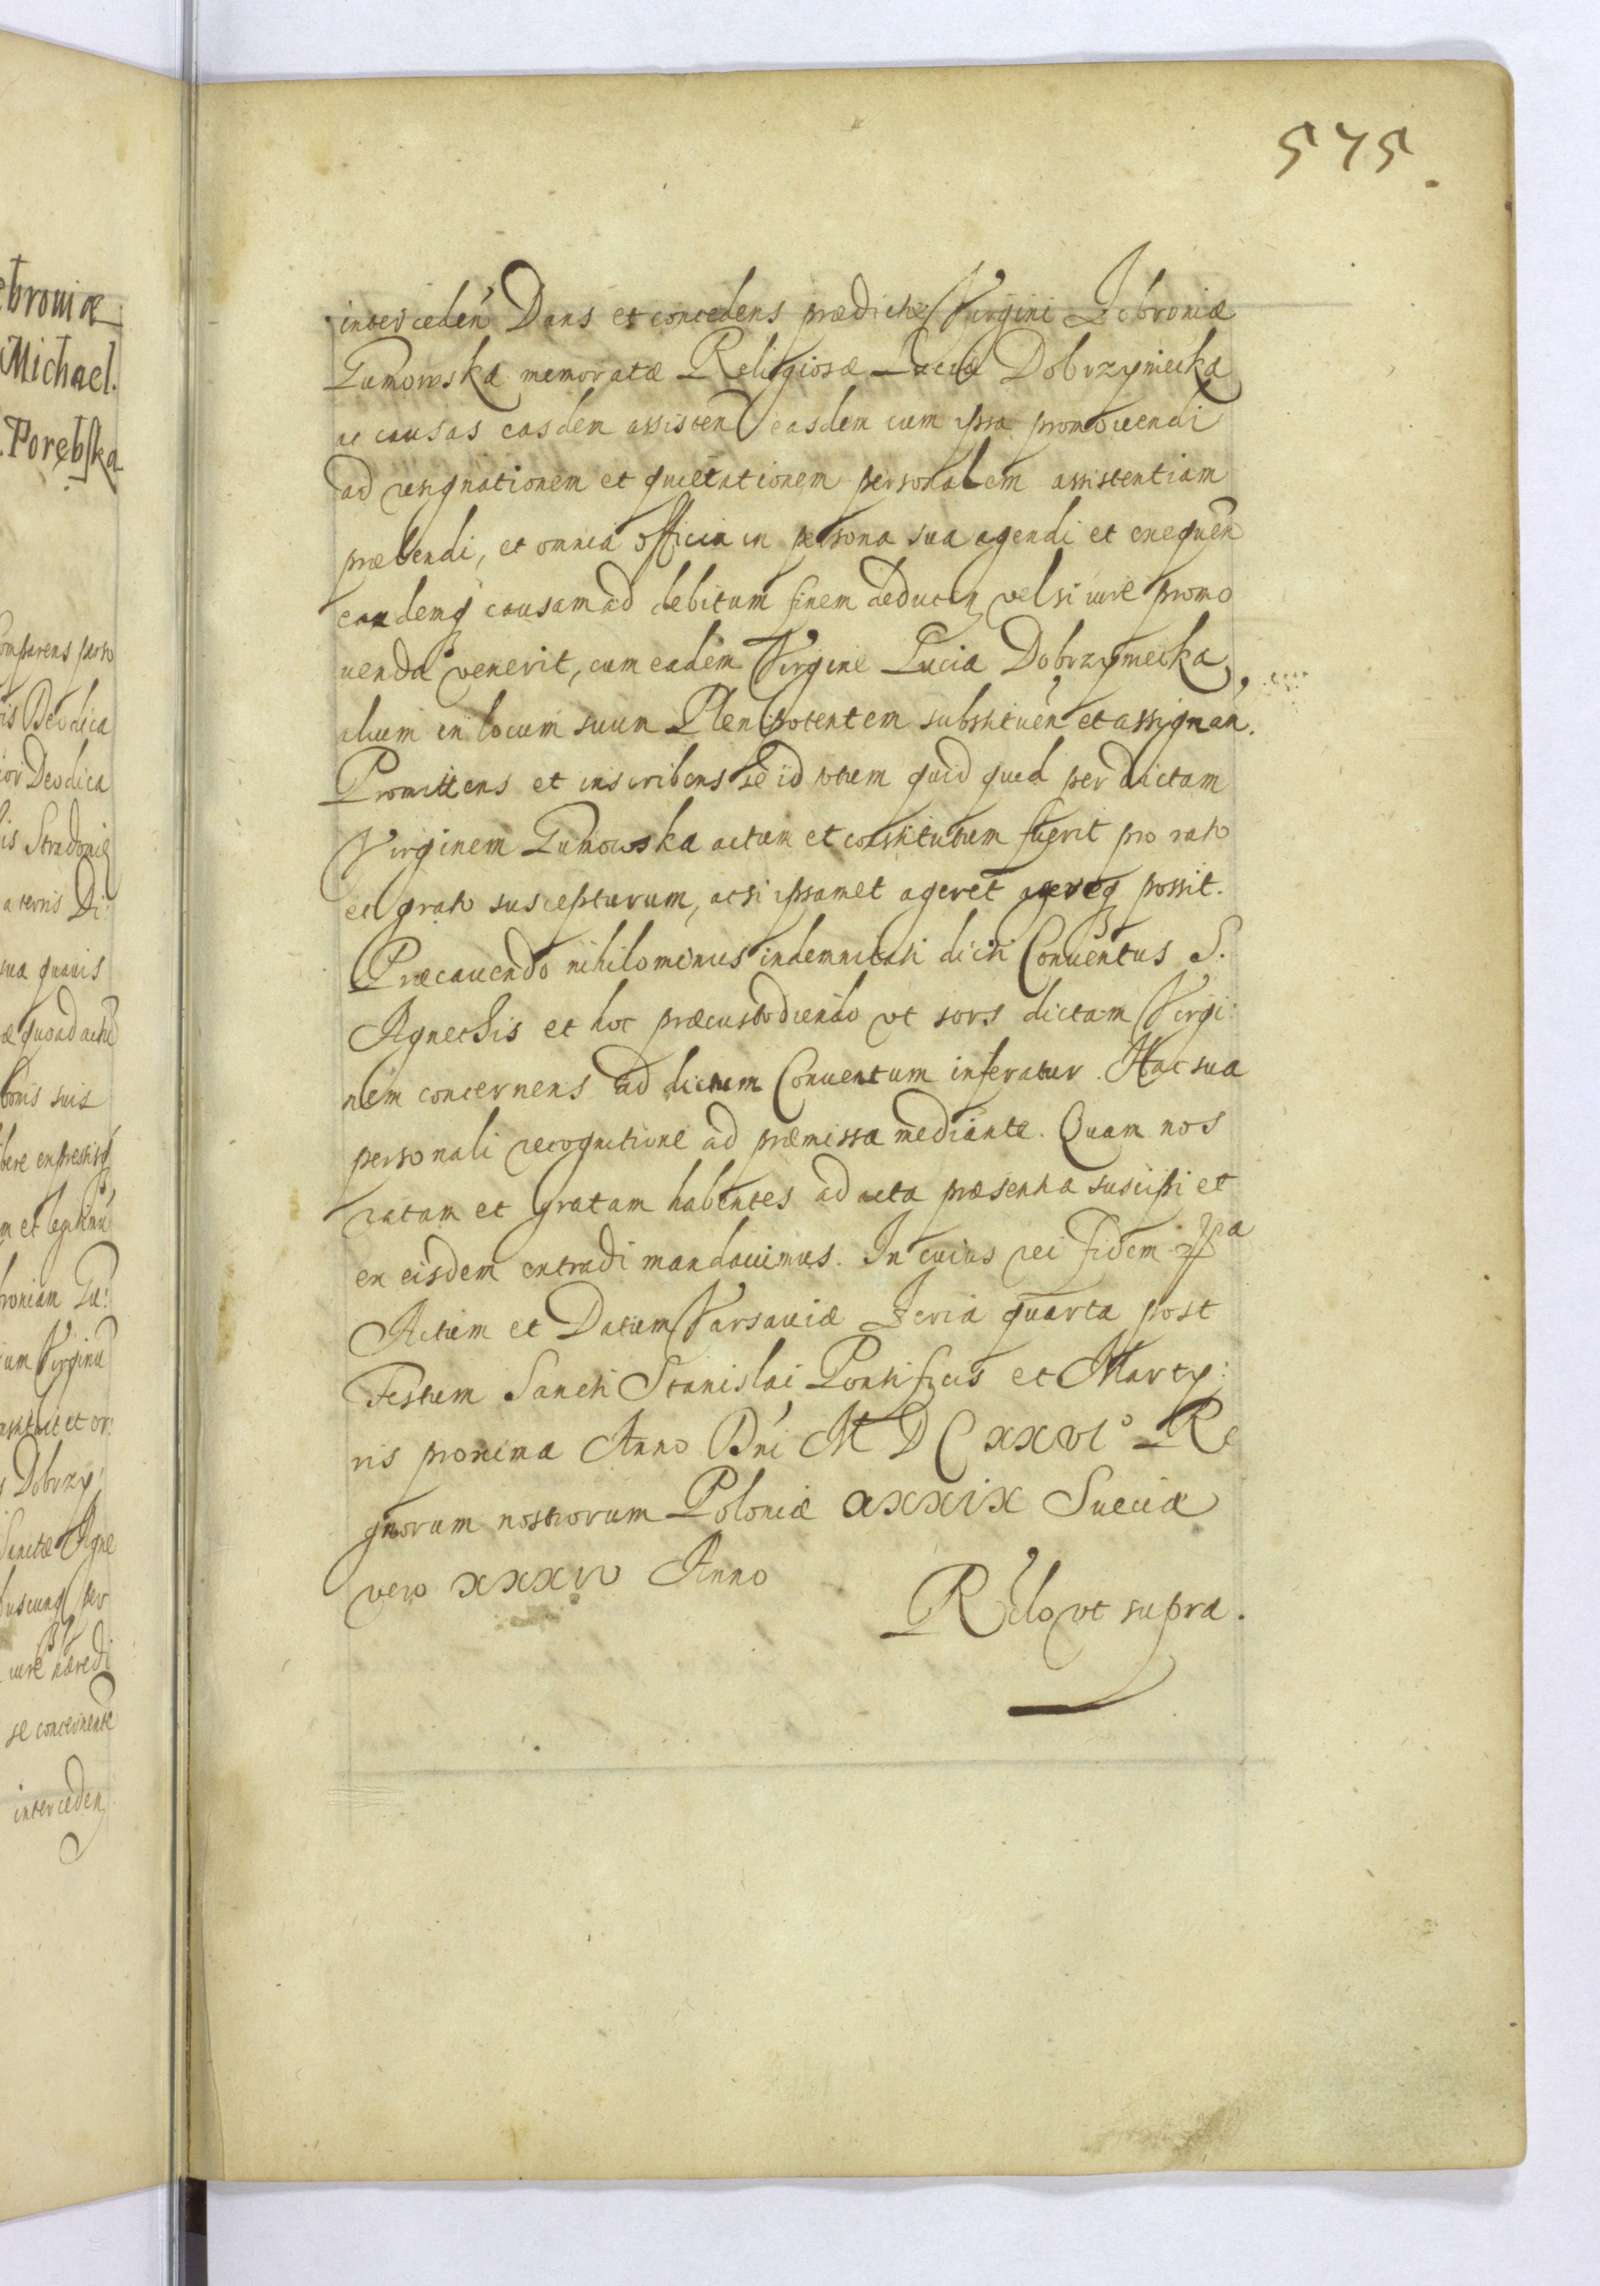 575.
interceden̄ Dans et concedens prædictæ Virgini Febroniæ
Gumowska memoratæ Religiosæ Luciæ Dobrzyniecka
ac causas easdem assisten easdem cum ipsa promouendi
ad resignationem et quietationem personalem assistentiam
præbendi, et omnia officia in persona sua agendi et exequen̄
eandemq causam ad debitum finem deducen vel si iure promo
uenda venerit, cum eadem Virgine Lucia Dobrzyniecka,
alium in locum suum Plenipotentem substituen̄ et assignan̄.
Promittens et inscribens se id totum quid quid per dictam
Virginem Gumowska actum et constitutum fuerit pro rato
et grato suscepturum, acsi ipsamet ageret agereq possit.
Præcauendo nihilominus indemnitati dicti Conuentus S.
Agnethis et hoc præcustodiendo vt sors dictam Virgi:
nem concernens ad dictum Conuentum inferatur. Hac sua
personali recognitione ad præmissa mediante. Quam nos
ratam et gratam habentes ad acta præsentia suscipi et
ex eisdem extradi mandauimus. In cuius rei fidem
Actum et Datum Varsauiæ Feria quarta post
Festum Sancti Stanislai Pontificis et Marty:
ris proxima Anno Dn̄i M D C XXVI° Re
gnorum nostrorum Poloniæ XXXIX Sueciæ
vero XXXIV Anno
Rel̄o vt supra.
ebroniæ
Michael.
Porębska
omparens perso
is Deodica
ior Deodica
is Stradomie
aternis Di:
sua quauis
æ quoad actū
bonis suis
bere expressisq
m et legitimū
broniam Gu:
iam Virginē
nstituit et or:
s Dobrzy:
Sanctæ Agne
buscunq per
iure hæredi
se concernente
interceden